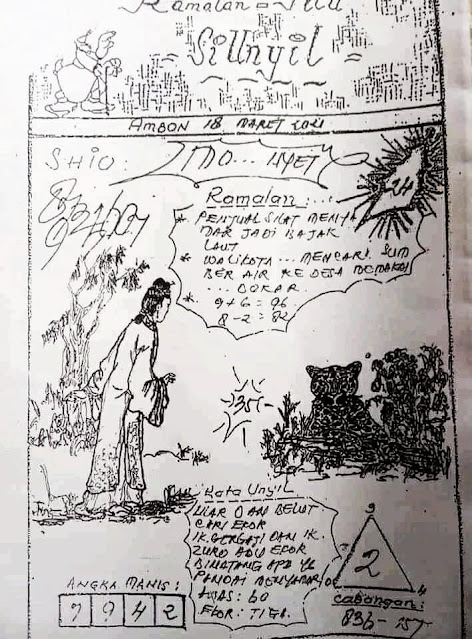 Ramalan =
SiUnyil
AMBON 18 MARET 2021
SHIO:
IMO... NYET
24
Ramalan....
* PENJUAL SILAT MENYA
MAR JADI BAJAK
LAUT
* WALIKOTA ... MENCARI SUM
BER AIR KE DESA MEMAKAI
... DOKAR.
9+6 = 96
8-2 = 82
35
Kata Unyil
ULAR DAN BELUT
CARI EKOR
IK. GERGAJI DAN IK.
ADU EKOR
BINATANG APA YG
PANDAI MENYAMAR
AWAS: 60
EKOR: TIGA.
9
7
2
0
4
ANGKA MANIS:
7 9 4 2
Cabangan:
836 - 157